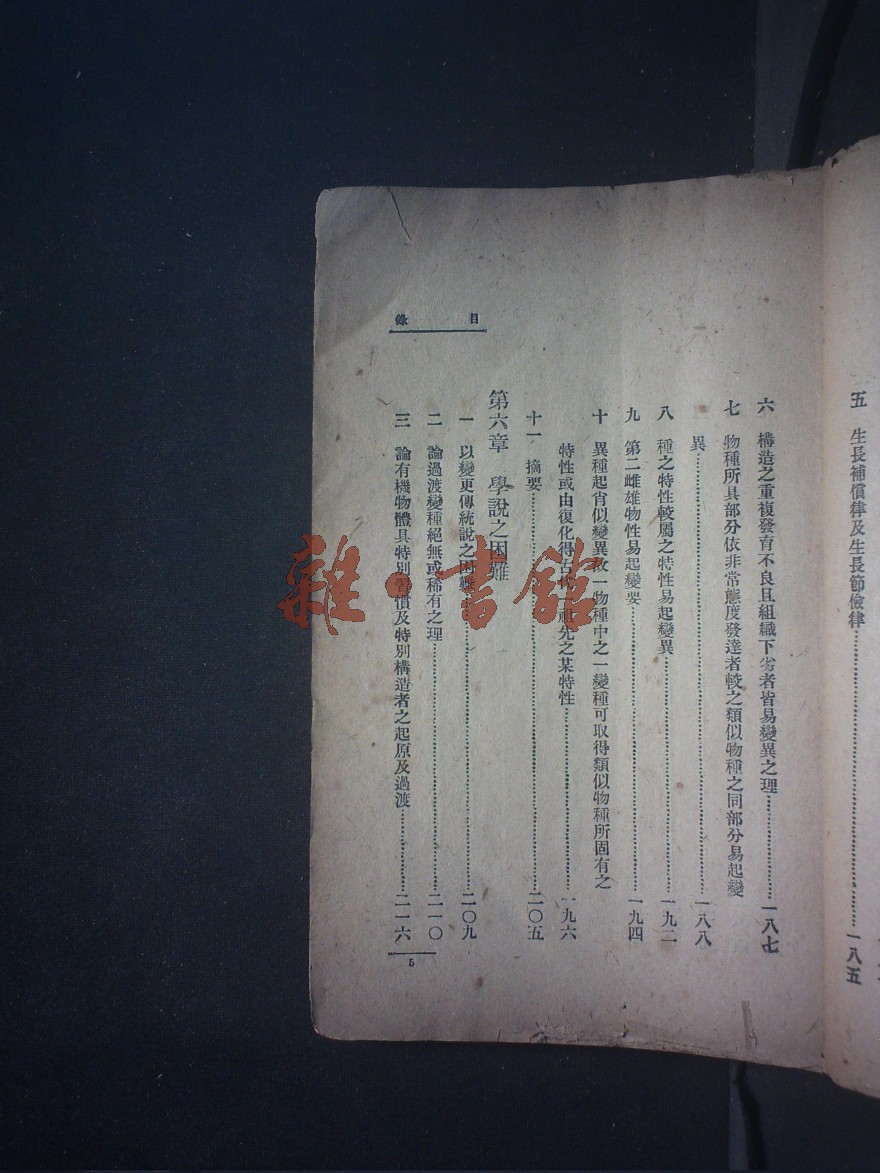 五　生長補償律及生長節儉律……一八五
目　錄
六　構造之重複發育不良且組織下劣者皆易變異之理……一八七
七　物種所具部分依非常態度發達者較之類似物種之同部分易起變
異……一八八
八　種之特性較屬之特性易起變異……一九二
九　第二雌雄物性易起變要……一九四
十　異種起肖似變異故一物種中之一變種可取得類似物種所固有之
特性或由復化得古代祖先之某特性……一九六
十一　摘要……二〇五
第六章　學說之困難
一　以變更傳統說之困難……二〇九
二　論過渡變種絕無或稀有之理……二一〇
三　論有機物體具特別習慣及特別構造者之起原及過渡……二一六
5
雜·書館